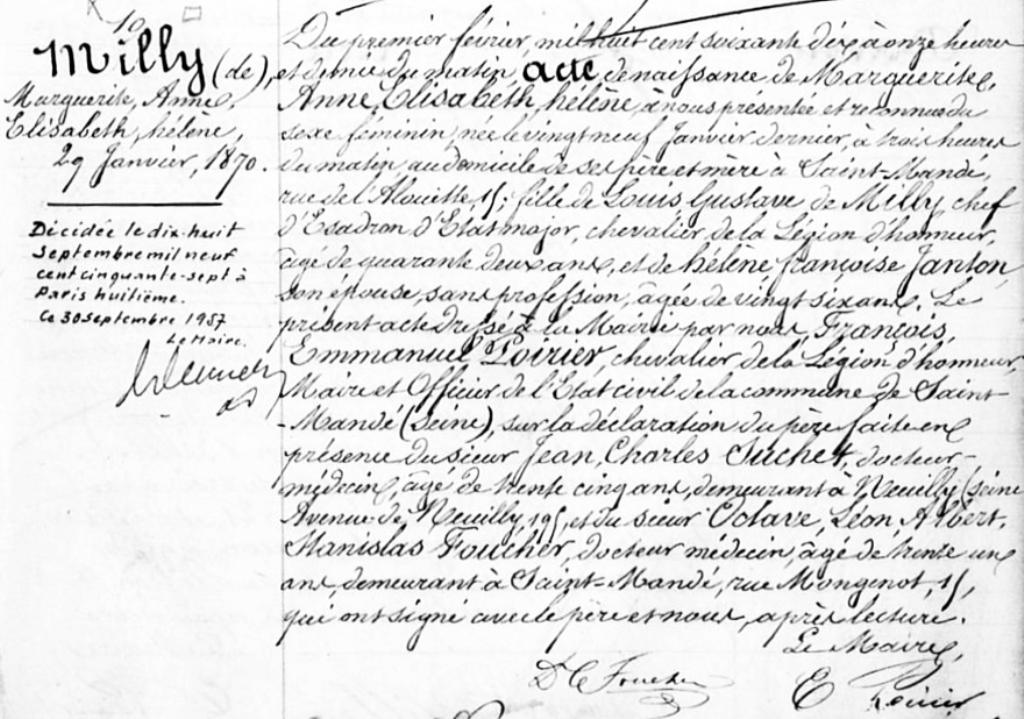 10
Milly (de),
Marguerite, Anne,
Elisabeth, hélène,
29 Janvier, 1870.
Décédée le dix-huit
Septembre mil neuf
cent cinquante-sept à
Paris huitième.
Ce 30 septembre 1957
Le Maire.
Du premier février, mil huit cent soixante dix à onze heures
et demie du matin, acte de naissance de Marguerite,
Anne, Elisabeth, hélène, à nous présentée et reconnue du
sexe féminin, née le vingt neuf Janvier dernier, à trois heures
du matin, au domicile de ses père et mère à Saint-Mandé,
rue de l'Alouette, 15; fille de Louis Gustave de Milly, chef
d'Esadron d'Etat major, chevalier de la Légion d'honneur,
âgé de quarante deux ans, et de hélène françoise Janton,
son épouse, sans profession, âgée de vingt six ans. Le
présent acte dressé à la Mairie par nous François,
Emmanuel Poirier, chevalier de la Légion d'honneur,
Maire et Officier de l'Etat civil de la commune de Saint-
Mandé (Seine), sur la déclaration du père faite en
présence du sieur Jean, Charles Suchet, docteur-
médecin, âgé de trente cinq ans, demeurant à Neuilly (Seine
Avenue de Neuilly, 195, et du sieur Octave, Léon Albert,
Stanislas Foucher, docteur médecin, âgé de trente un
ans, demeurant à Saint=Mandé, rue Mongenot, 15,
qui ont signé avec le père et nous, après lecture.
Le Maire,
Dr Foucher
E Poirier